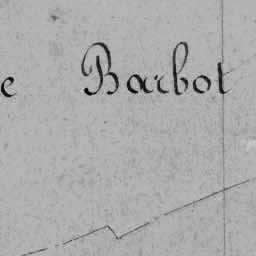 e Barbot